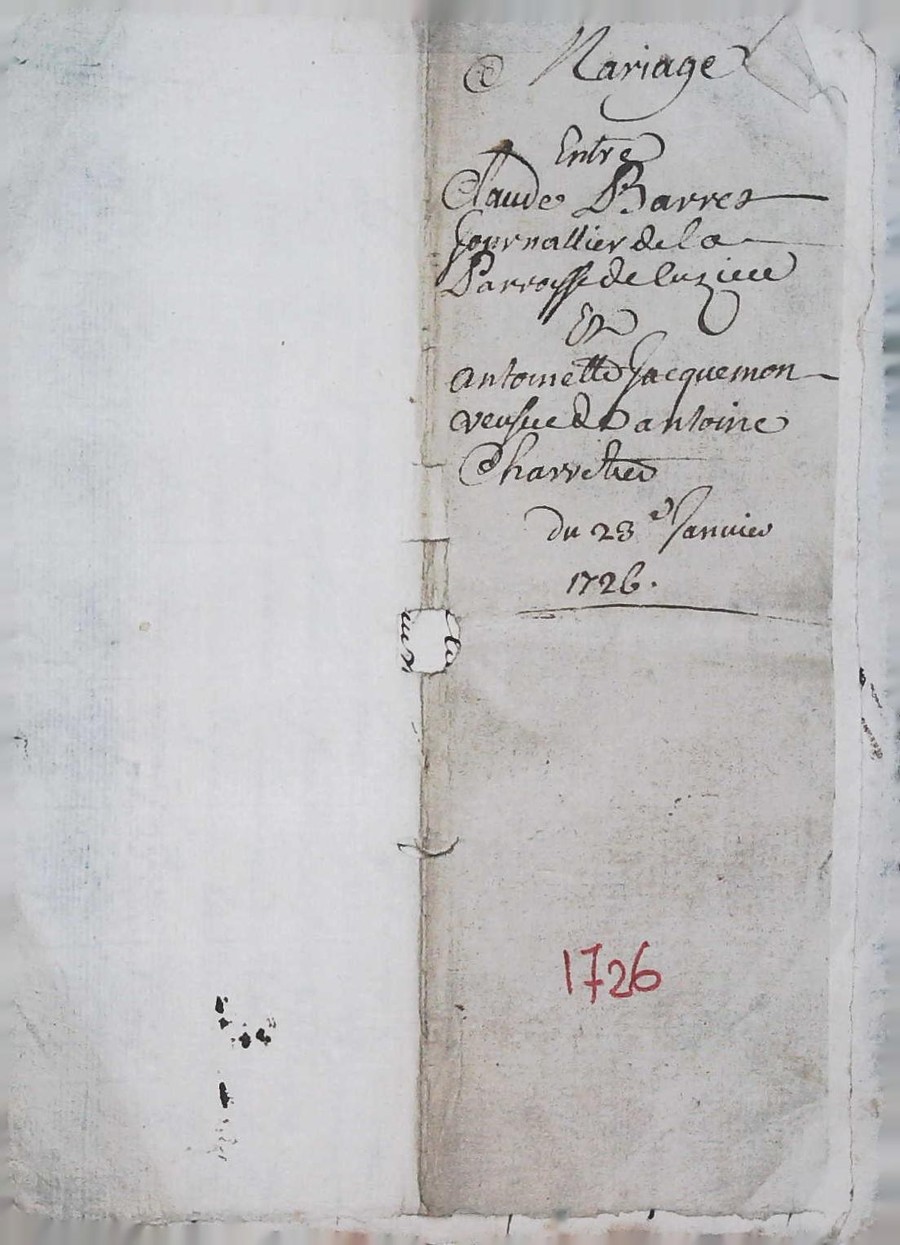 Mariage
Entre
Claude Barret
Journallier de la
Parroisse de luzieu
Et
antoinette Jacquemon
veufue de antoine
Charretier
du 23e Janvier
1726.
1726